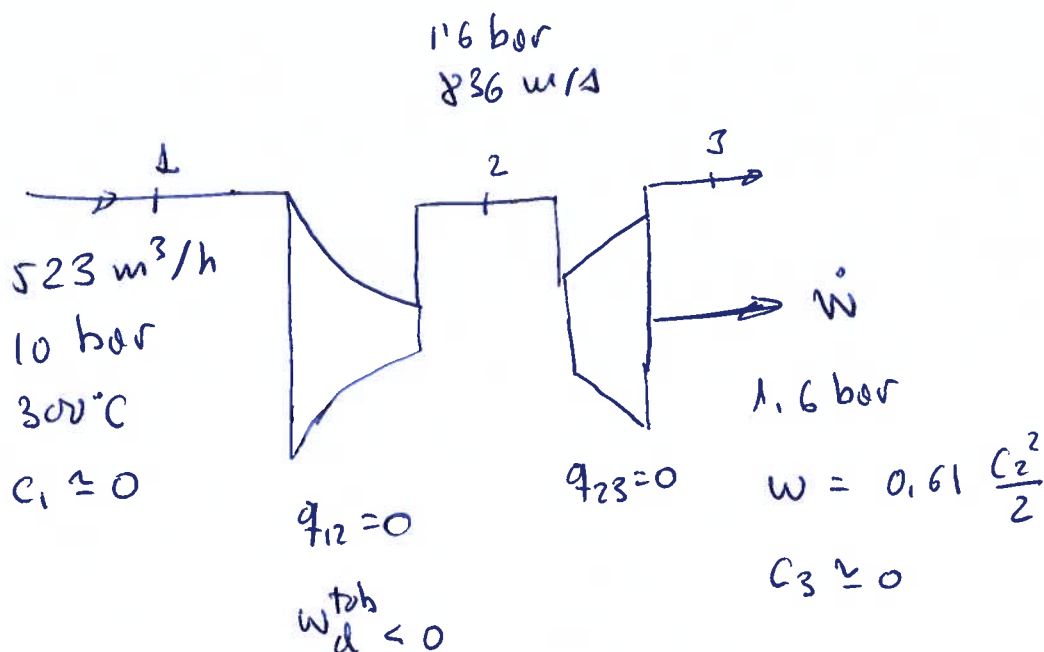 1'6 bar
836 m/s
1
2
3
523 m³/h
10 bar
300°C
C₁ ≃ 0
q₁₂ = 0
w_d^tob < 0
q₂₃ = 0
Ẇ
1.6 bar
w = 0,61 C₂²/2
C₃ ≃ 0